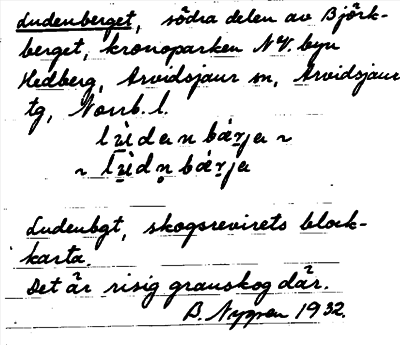 Ludenberget, södra delen av Björk-
berget, kronoparken NV. byn
Hedberg, Arvidsjaur sn, Arvidsjaur
tg, Norrb. l.


Ludenbgt, skogsrevirets block-
karta.
Det är risig granskog där.
B. Nygren 1932.